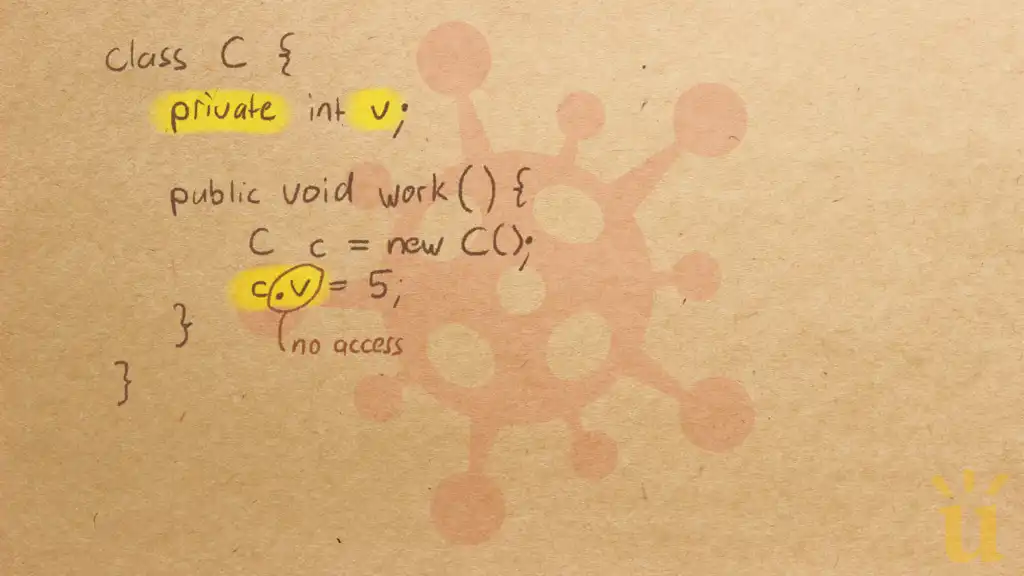 class C {
private int v;
public void work() {
C c = new C();
c.v = 5;
}
no access
}
ü